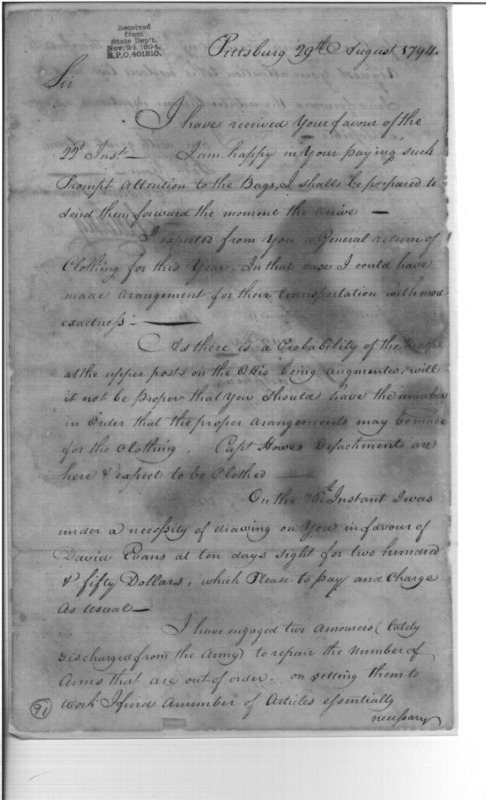 Received
from
State Dep't.
Nov. 24, 1894,
R.P.O. 401810.
Pittsburg 29th August 1794.
Sir
I have received Your favour of the
22d Inst— I am happy in Your paying such
Prompt attention to the Bags, I shall be prepared to
send them forward the moment the arrive —
I expected from You a General return of
Clothing for this Year, In that case I could have
made arangement for their transportation with more
exactness —
As there is a Probability of the
at the upper posts on the Ohio being augmented, will
it not be proper that You should have the number
in Order that the proper arangements may be made
for the Clothing. Capt Howes Detachment are
here & expect to be Clothed —
On the 26th Instant I was
under a necessity of drawing on You in favour of
David Evans at ten days sight for two hundred
& fifty Dollars, which Please to pay and Charge
As usual —
I have engaged two Amourers (
discharged from the Army) to repair the number of
Arms that are out of order. on setting them to
Work I find a number of Articles essentially
necessary
91